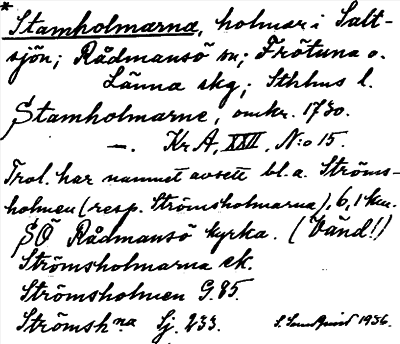 * Stamholmarna, holmar i Salt-
sjön; Rådmansö sn; Frötuna o.
Länna skg; Sthlms l.
Stamholmarne, omkr. 1730.
—. Kr A, XXII, N:o 15.
Trol. har namnet avsett bl.a. Ströms-
holmen (resp. Strömsholmarna), 6,1 km.
SÖ Rådmansö kyrka. (Vänd!)
Strömsholmarna ek.
Strömsholmen G. 85.
Strömsh:na Sj. 233. 1936.